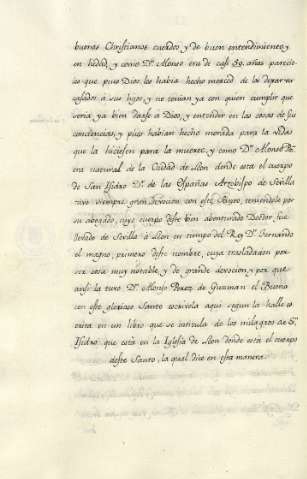 buenos Christianos cuerdos y de buen entendimiento, y
en hedad, y como Dn. Alonso era de casi 59. años parecio
les que pues Dios les havia hecho merced de les dexar
casados a sus hijos, y no tenian ya con quien cumplir que
seria ya bien darse a Dios, y entender en las cosas de sus
conciencias, y pues havian hecho morada para la vida
que la hiciesen para la muerte, y como Dn. Alonso
era natural de la Ciudad de Leon donde está el cuerpo
de San Isidro Dr. de las Españas Arzobispo de Sevilla
tuvo siempre gran devocion con este Santo, teniendole por
su abogado, cuyo cuerpo deste bien abenturado Doctor fue
llevado de Sevilla á Leon en tiempo del Rey Dn. Fernando
el magno, primero deste nombre, cuya trasladacion por
ser cosa muy notable, y de grande devocion, y por que
ansi la tuvo Dn. Alonso Perez de Guzman el Bueno
con este glorioso Santo escrivola aqui segun la halle es
crita en un libro que se intitula de los milagros de Sn.
Isidro que está en la Iglesia de Leon donde está el cuerpo
deste Santo, la qual dice en esta manera.